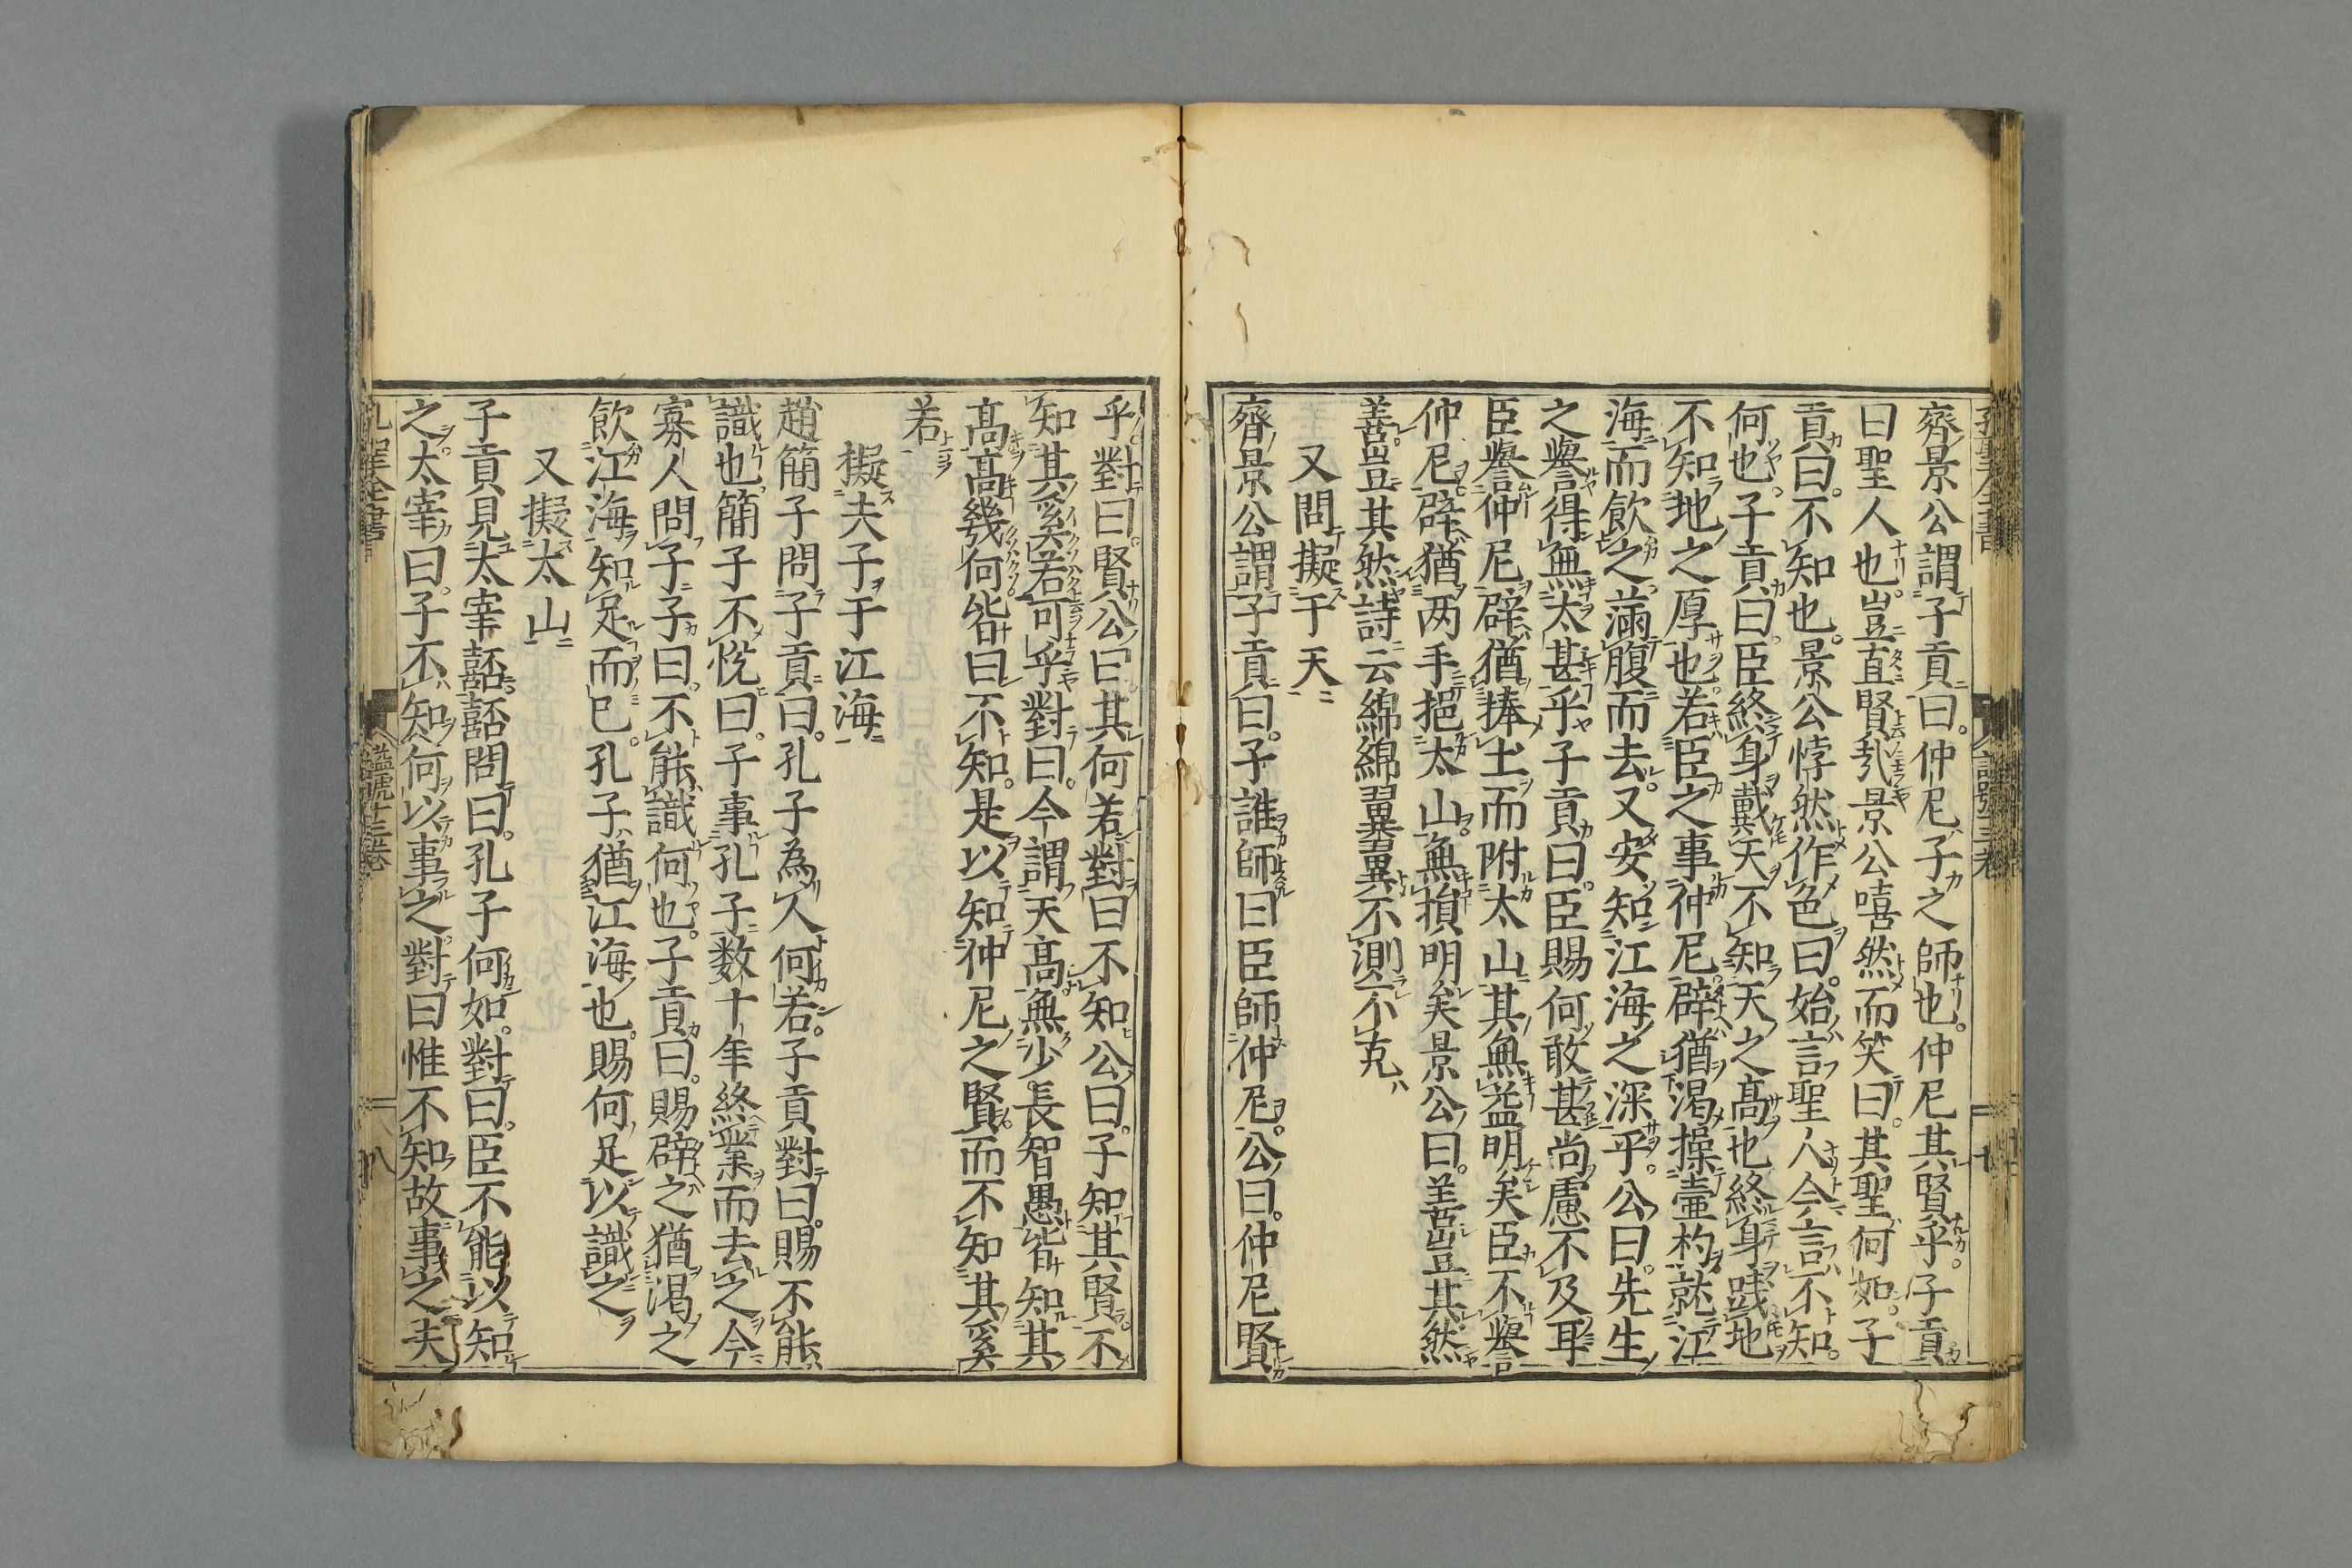 齊景公謂子貢曰仲尼子之師也仲尼其賢乎子貢
曰聖人也豈直賢㢤景公嘻然而笑曰其聖何如子
貢曰不知也景公悖然作色曰始言聖人今言不知
何也子貢曰臣終身戴天不知天之高也終身踐地
不知地之厚也若臣之事仲尼辟猶渴操壷杓就江
海而飲之滿腹而去又安知江海之深乎公曰先生
之譽得無太甚乎子貢曰臣賜何敢甚尚慮不及耳
臣譽仲尼辟猶捧土而附太山其無益明矣臣不譽
仲尼辟猶两手挹太山無損明矣景公曰善豈其然
善豈其然詩云綿綿翼翼不測不克
又問擬于天
齊景公謂子貢曰子誰師曰臣師仲尼公曰仲尼賢
乎對曰賢公曰其何若對曰不知公曰子知其賢不
知其奚若可乎對曰今謂天髙無少長智愚皆知其
髙髙幾何皆曰不知是以知仲尼之賢而不知其奚
若
擬夫子于江海
趙簡子問子貢曰孔子為人何若子貢對曰賜不能
識也簡子不悅曰子事孔子数十年終業而去之今
寡人問子子曰不能識何也子貢曰賜辟之猶渴之
飲江海知足而已孔子猶江海也賜何足以識之
又擬太山
子貢見太宰嚭嚭問曰孔子何如對曰臣不能以知
之太宰曰子不知何以事之對曰惟不知故事之夫
諡號十三卷
八